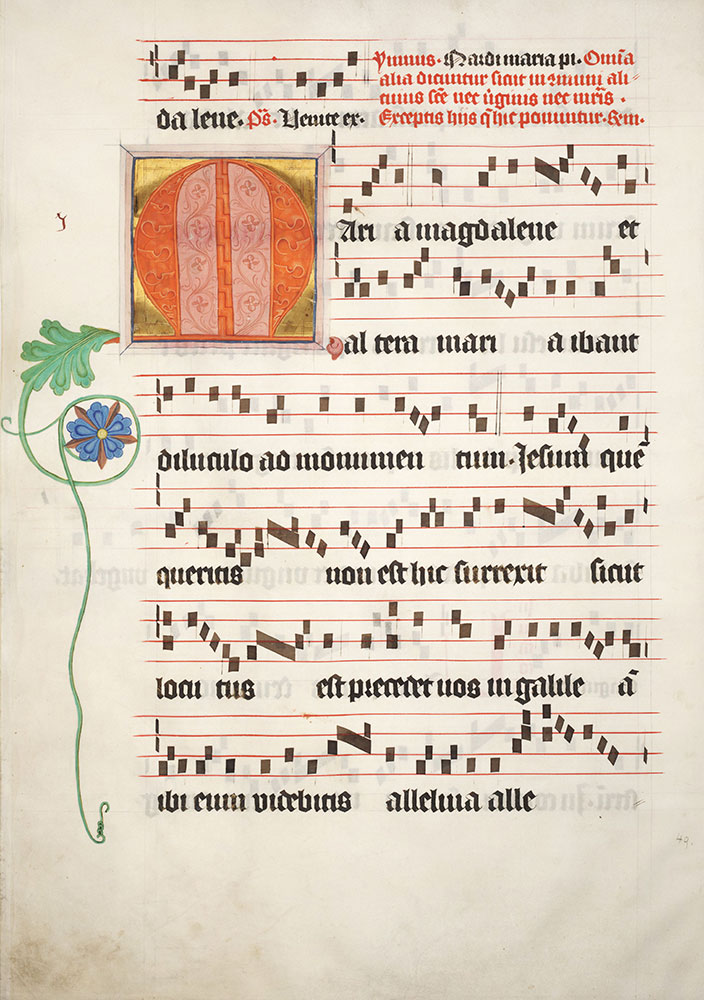 Ymnus. Nardi maria pi. Omīa
alia dicuntur sicut in cōmuni ali
cuius scē nec v̓ginis nec mr̄is.
da lene. Ps̄. Venite ex. Exceptis hijs q̄ hic ponuntur. Rm.
MAri a magdalene et
al tera mari a ibant
diluculo ad monumen tum. Jesum quē
queritis non est hic surrexit sicut
locu tus est precedet uos in galile ā
ibi eum videbitis alleluia alle
49.